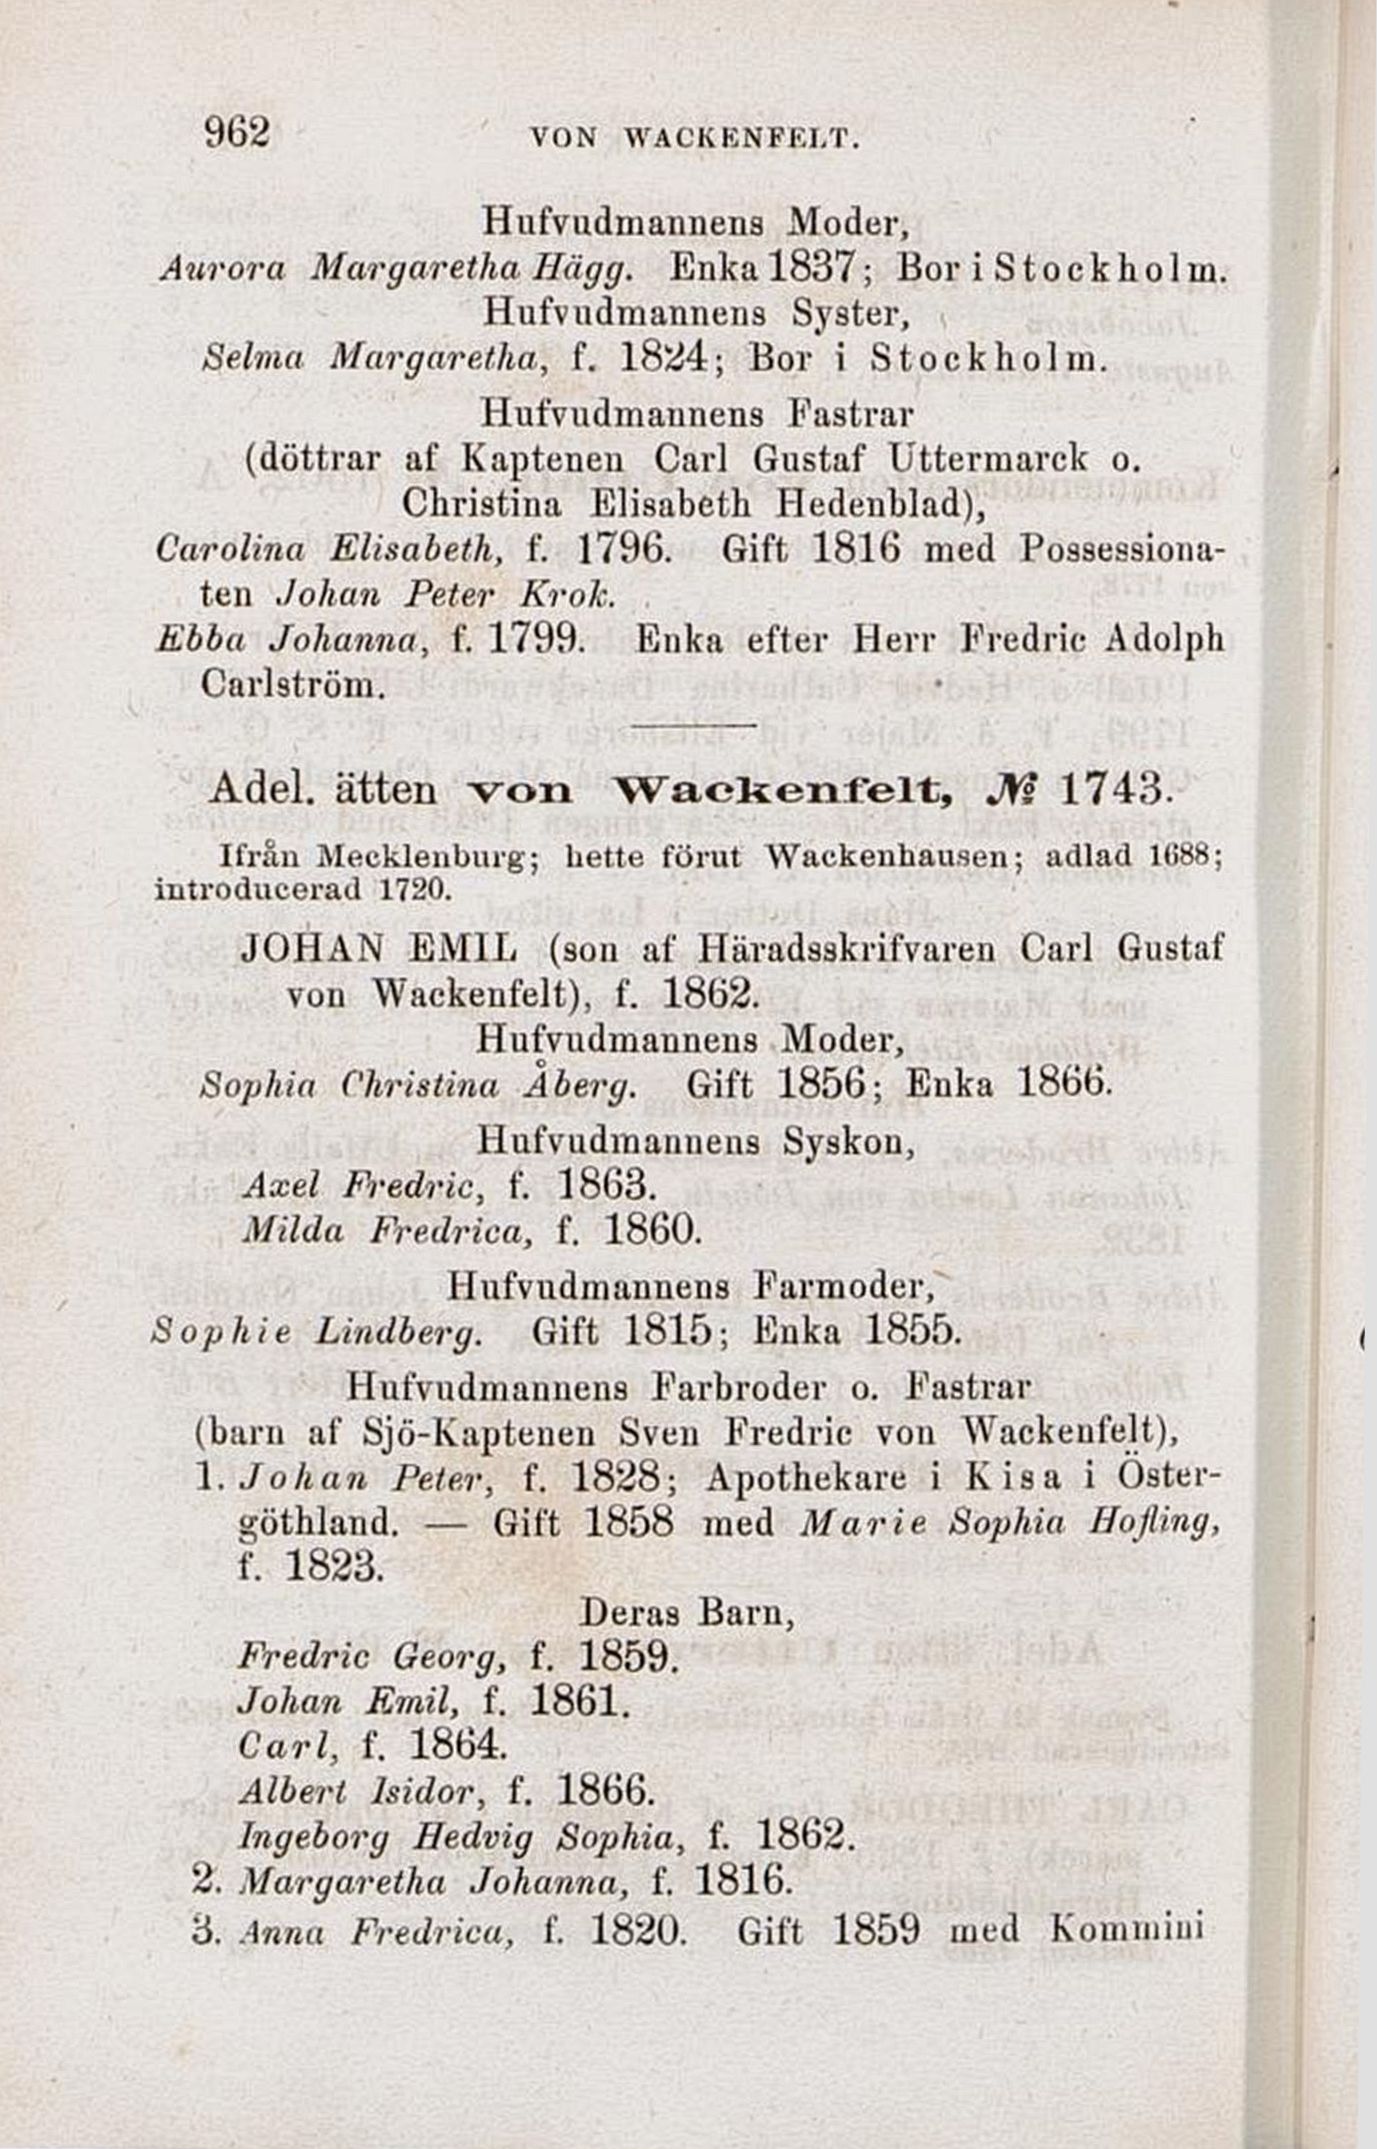 962 VON WACKENFELT.
Hufvudmannens Moder,
Aurora Margaretha Hägg. Enka 1837; Bor i Stockholm.
Hufvudmannens Syster,
Selma Margaretha, f. 1824; Bor i Stockholm.
Hufvudmannens Fastrar
(döttrar af Kaptenen Carl Gustaf Uttermarck o.
Christina Elisabeth Hedenblad),
Carolina Elisabeth, f. 1796. Gift 1816 med Possessiona-
ten Johan Peter Krok.
Ebba Johanna, f. 1799. Enka efter Herr Fredric Adolph
Carlström.
Adel. ätten von Wackenfelt, № 1743.
Ifrån Mecklenburg; hette förut Wackenhausen; adlad 1688;
introducerad 1720.
JOHAN EMIL (son af Häradsskrifvaren Carl Gustaf
von Wackenfelt), f. 1862.
Hufvudmannens Moder,
Sophia Christina Åberg. Gift 1856; Enka 1866.
Hufvudmannens Syskon,
Axel Fredric, f. 1863.
Milda Fredrica, f. 1860.
Hufvudmannens Farmoder,
Sophie Lindberg. Gift 1815; Enka 1855.
Hufvudmannens Farbroder o. Fastrar
(barn af Sjö-Kaptenen Sven Fredric von Wackenfelt),
1. Johan Peter, f. 1828; Apothekare i Kisa i Öster-
göthland. — Gift 1858 med Marie Sophia Hofling,
f. 1823.
Deras Barn,
Fredric Georg, f. 1859.
Johan Emil, f. 1861.
Carl, f. 1864.
Albert Isidor, f. 1866.
Ingeborg Hedvig Sophia, f. 1862.
2. Margaretha Johanna, f. 1816.
3. Anna Fredrica, f. 1820. Gift 1859 med Kommini